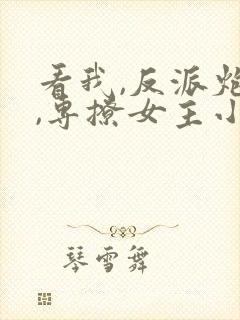 看我,反派炮
,专撩女主小
琴雪舞